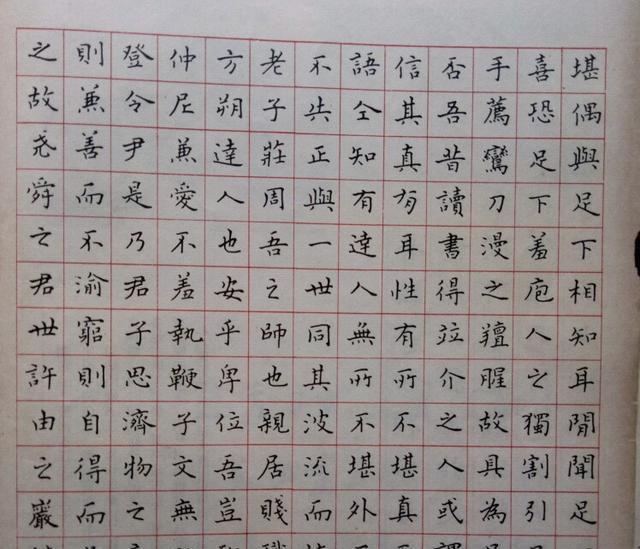 堪偶與足下相知耳閒聞足
喜恐足下羞庖人之獨割引
手薦鸞刀漫之羶腥故具為
否吾昔讀書得竝介之人或
信其真有耳性有所不堪真
語仝知有達人無所不堪外
不失正與一世同其波流而
老子莊周吾之師也親居賤
方朔達人也安乎卑位吾豈
仲尼兼愛不羞執鞭子文無
登令尹是乃君子思濟物之
則兼善而不渝窮則自得而
之故堯舜之君世許由之巖